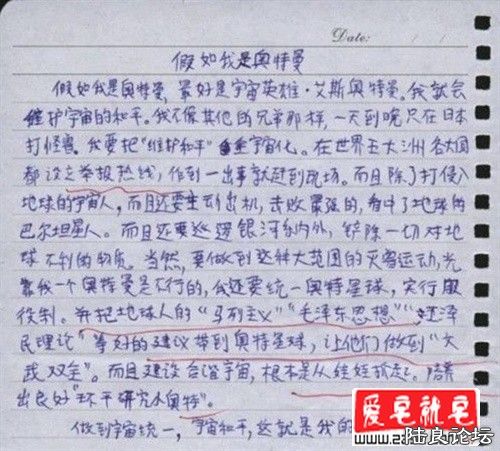 Date: / /
假如我是奥特曼
假如我是奥特曼,最好是宇宙英雄·艾斯奥特曼。我就会
维护宇宙的和平。我不像其他的兄弟那样,一天到晚只在日本
打怪兽。我要把“维护和平”宇宙化。在世界五大洲各大国
都设立举报热线,做到一出事就赶到现场。而且除了打侵入
地球的宇宙人,而且还要主动出机,去收最强的,看中了地球的
巴尔坦星人。而且还要巡逻银河系内外,铲除一切对地
球不利的物质。当然,要做到这种大范围的灭害运动,光
靠我一个奥特曼是不行的,我还要统一奥特星球,实行服
役制。并把地球人的“马列主义”“毛泽东思想”“泽
民理论”等好的建议带到奥特星球,让他们做到“文
武双全”。而且建设合谐宇宙,根本是从娃娃抓起。培养
出良好“环平研究小奥特”。
做到宇宙统一,宇宙和平,这就是我的
爱宅就宅
陆良论坛